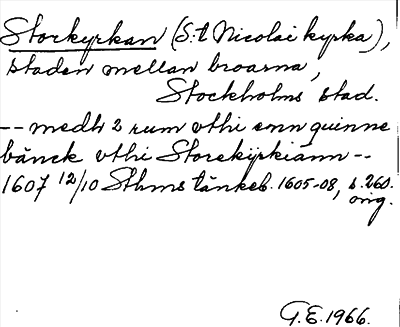 Storkyrkan (S:t Nicolai kyrka),
staden mellan broarna,
Stockholms stad.
-- medh 2 rum vthi enn quinne
bänck vthi Storekÿrkiänn --
1607 12/10 Sthms tänkeb. 1605-08, s. 260.
orig.
G.E. 1966.